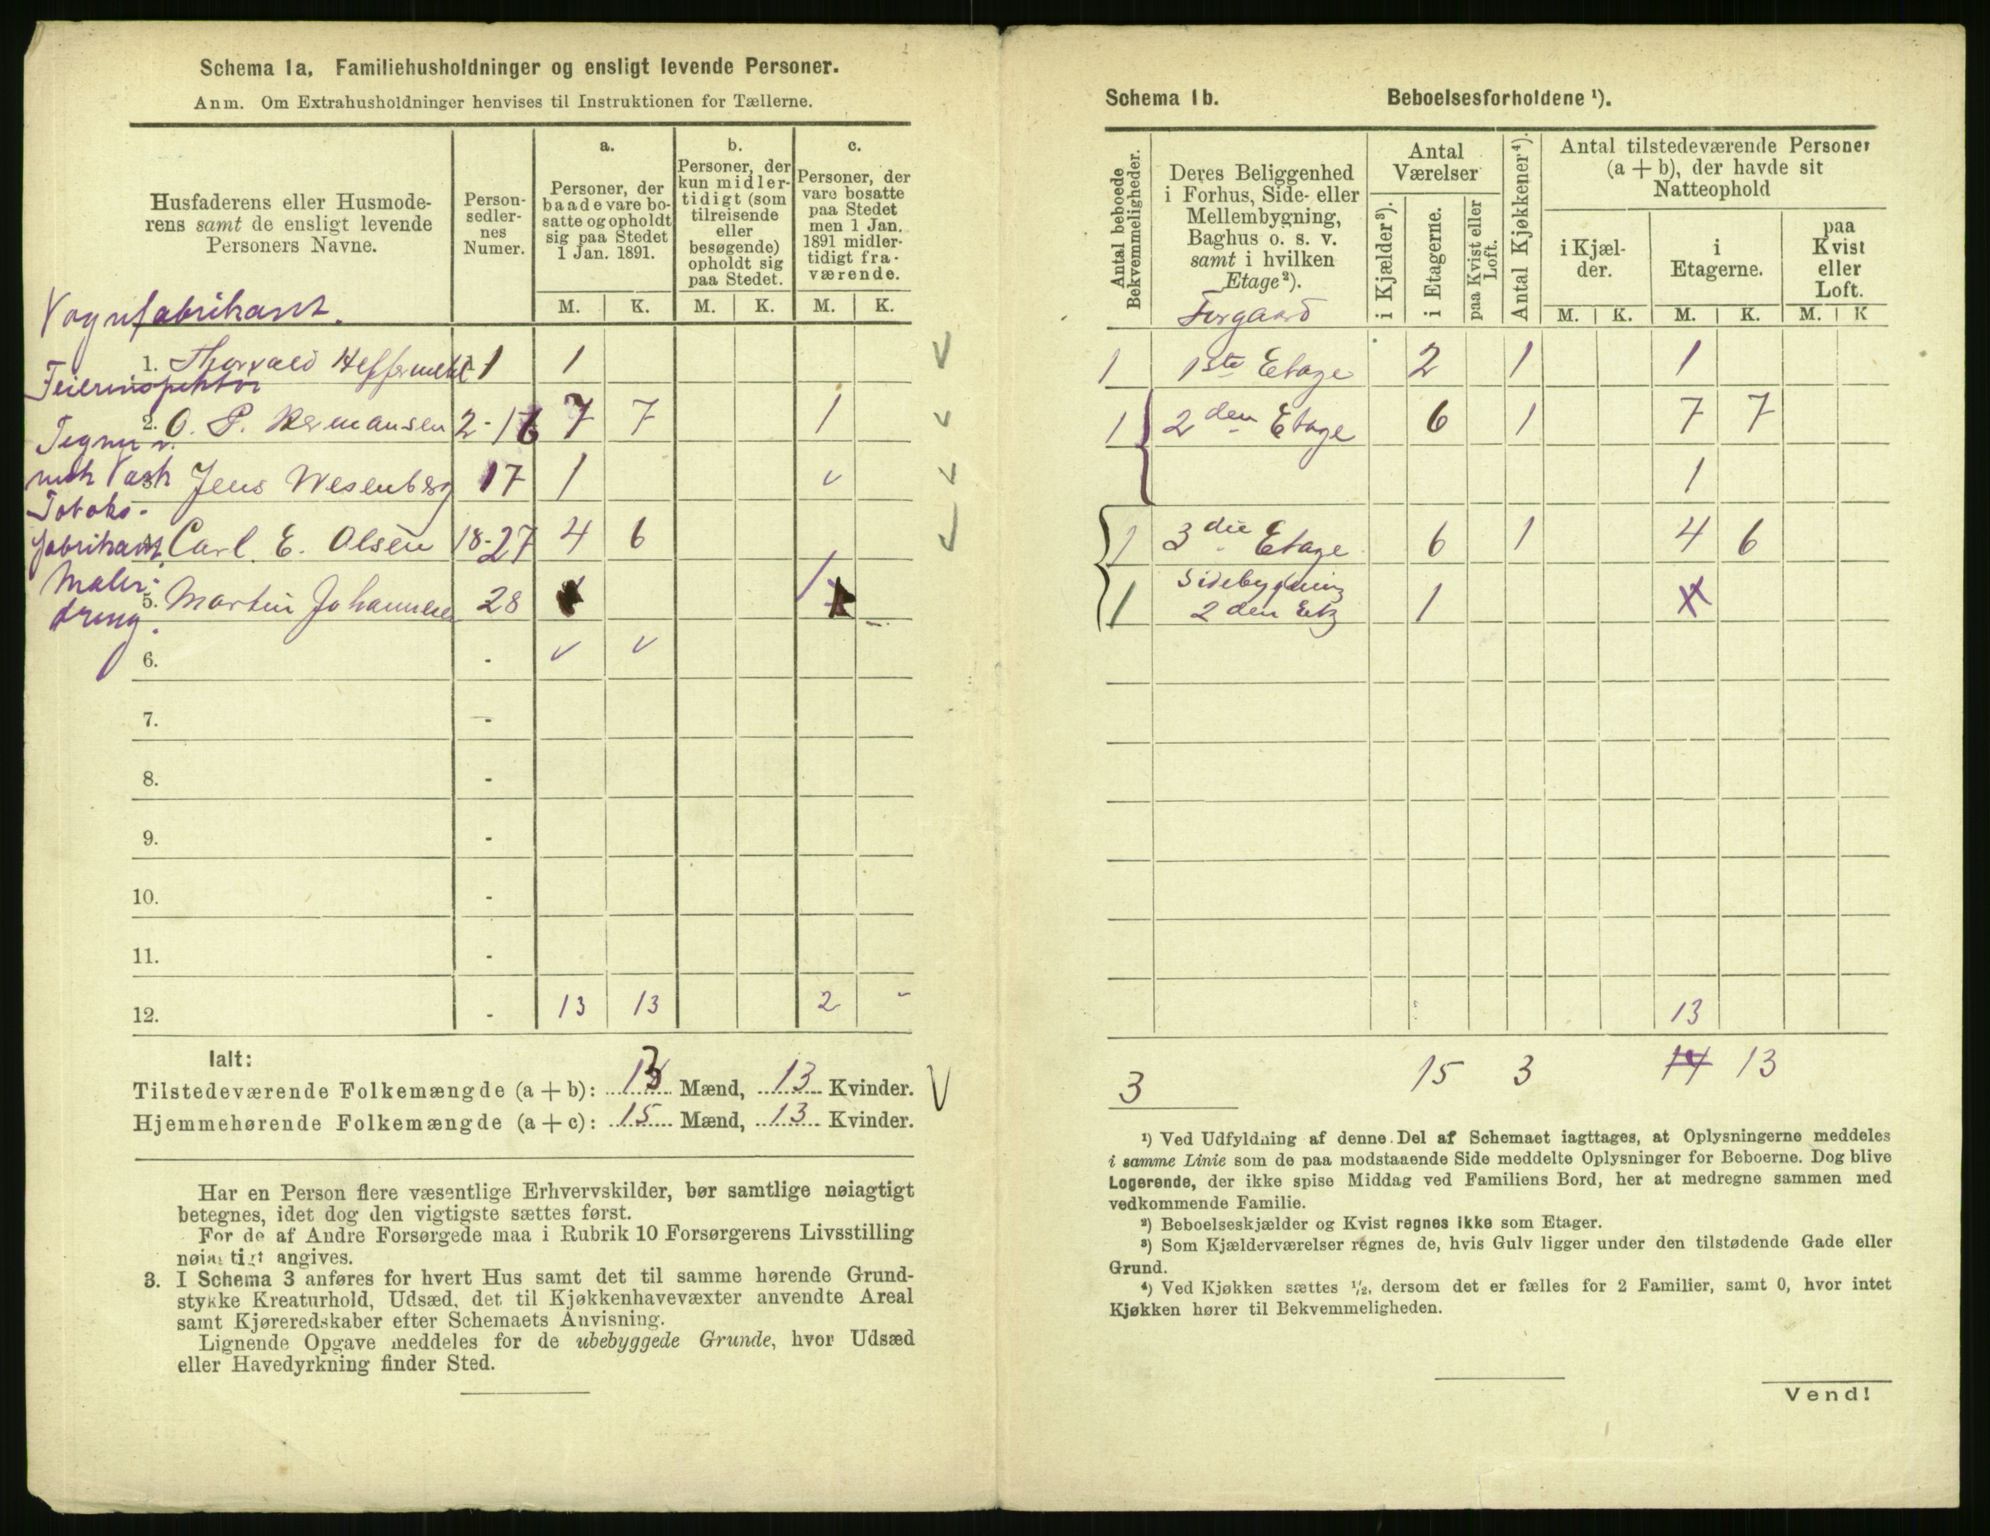 Schema 1a, Familiehusholdninger og ensligt levende Personer.
Anm. Om Extrahusholdninger henvises til Instruktionen for Tællerne.
Husfaderens eller Husmode-
rens samt de ensligt levende
Personers Navne.
Person-
sedler-
nes
Numer.
a.
Personer, der
baade vare bo-
satte og opholdt
sig paa Stedet
1 Jan. 1891.
b.
Personer, der
kun midler-
tidigt (som
tilreisende
eller
besøgende)
opholdt sig
paa Stedet.
c.
Personer, der
vare bosatte
paa Stedet
men 1 Jan.
1891 midler-
tidigt fra-
værende.
M. K. M. K. M. K.
Vognfabrikant.
1. Thorvald Heffermehl 1 1
Feierinspektør
2. O. P. Hermansen 2-16 7 7 1
Tegner v.
3 Jens Wesenberg 17 1
Tobaks-
fabrikant. Carl E. Olsen 18-27 4 6
Maler-
5. Martin Johannesen 28 1
dreng.
6. -
7. -
8. -
9. -
10. -
11. -
12. - 13 13 2 -
Ialt:
Tilstedeværende Folkemængde (a + b): 13 Mænd, 13 Kvinder.
Hjemmehørende Folkemængde (a + c): 15 Mænd, 13 Kvinder.
Har en Person flere væsentlige Erhvervskilder, bør samtlige nøiagtigt
betegnes, idet dog den vigtigste sættes først.
For de af Andre Forsørgede maa i Rubrik 10 Forsørgerens Livsstilling
nøiagtigt angives.
3. I Schema 3 anføres for hvert Hus samt det til samme hørende Grund-
stykke Kreaturhold, Udsæd, det til Kjøkkenhavevæxter anvendte Areal
samt Kjøreredskaber efter Schemaets Anvisning.
Lignende Opgave meddeles for de ubebyggede Grunde, hvor Udsæd
eller Havedyrkning finder Sted.
Schema 1b. Beboelsesforholdene ¹).
Antal beboede
Bekvemmeligheder.
Deres Beliggenhed
i Forhus, Side- eller
Mellembygning,
Baghus o. s. v.
samt i hvilken
Etage²).
Antal
Værelser
i Kjælder³).
i Etagerne.
paa Kvist eller
Loft.
Antal Kjøkkener⁴).
Antal tilstedeværende Personer
(a + b), der havde sit
Natteophold
i Kjæl-
der.
i
Etagerne.
paa
Kvist
eller
Loft.
M. K. M. K. M. K
Forgaard
1 1ste Etage 2 1 1
1 2den Etage 6 1 7 7
1
1 3die Etage 6 1 4 6
Sidebygning
1 2den Etg 1
13
3 15 3 14 13
¹) Ved Udfyldning af denne Del af Schemaet iagttages, at Oplysningerne meddeles
i samme Linie som de paa modstaaende Side meddelte Oplysninger for Beboerne. Dog blive
Logerende, der ikke spise Middag ved Familiens Bord, her at medregne sammen med
vedkommende Familie.
²) Beboelseskjælder og Kvist regnes ikke som Etager.
³) Som Kjælderværelser regnes de, hvis Gulv ligger under den tilstødende Gade eller
Grund.
⁴) Ved Kjøkken sættes ½, dersom det er fælles for 2 Familier, samt 0, hvor intet
Kjøkken hører til Bekvemmeligheden.
Vend!